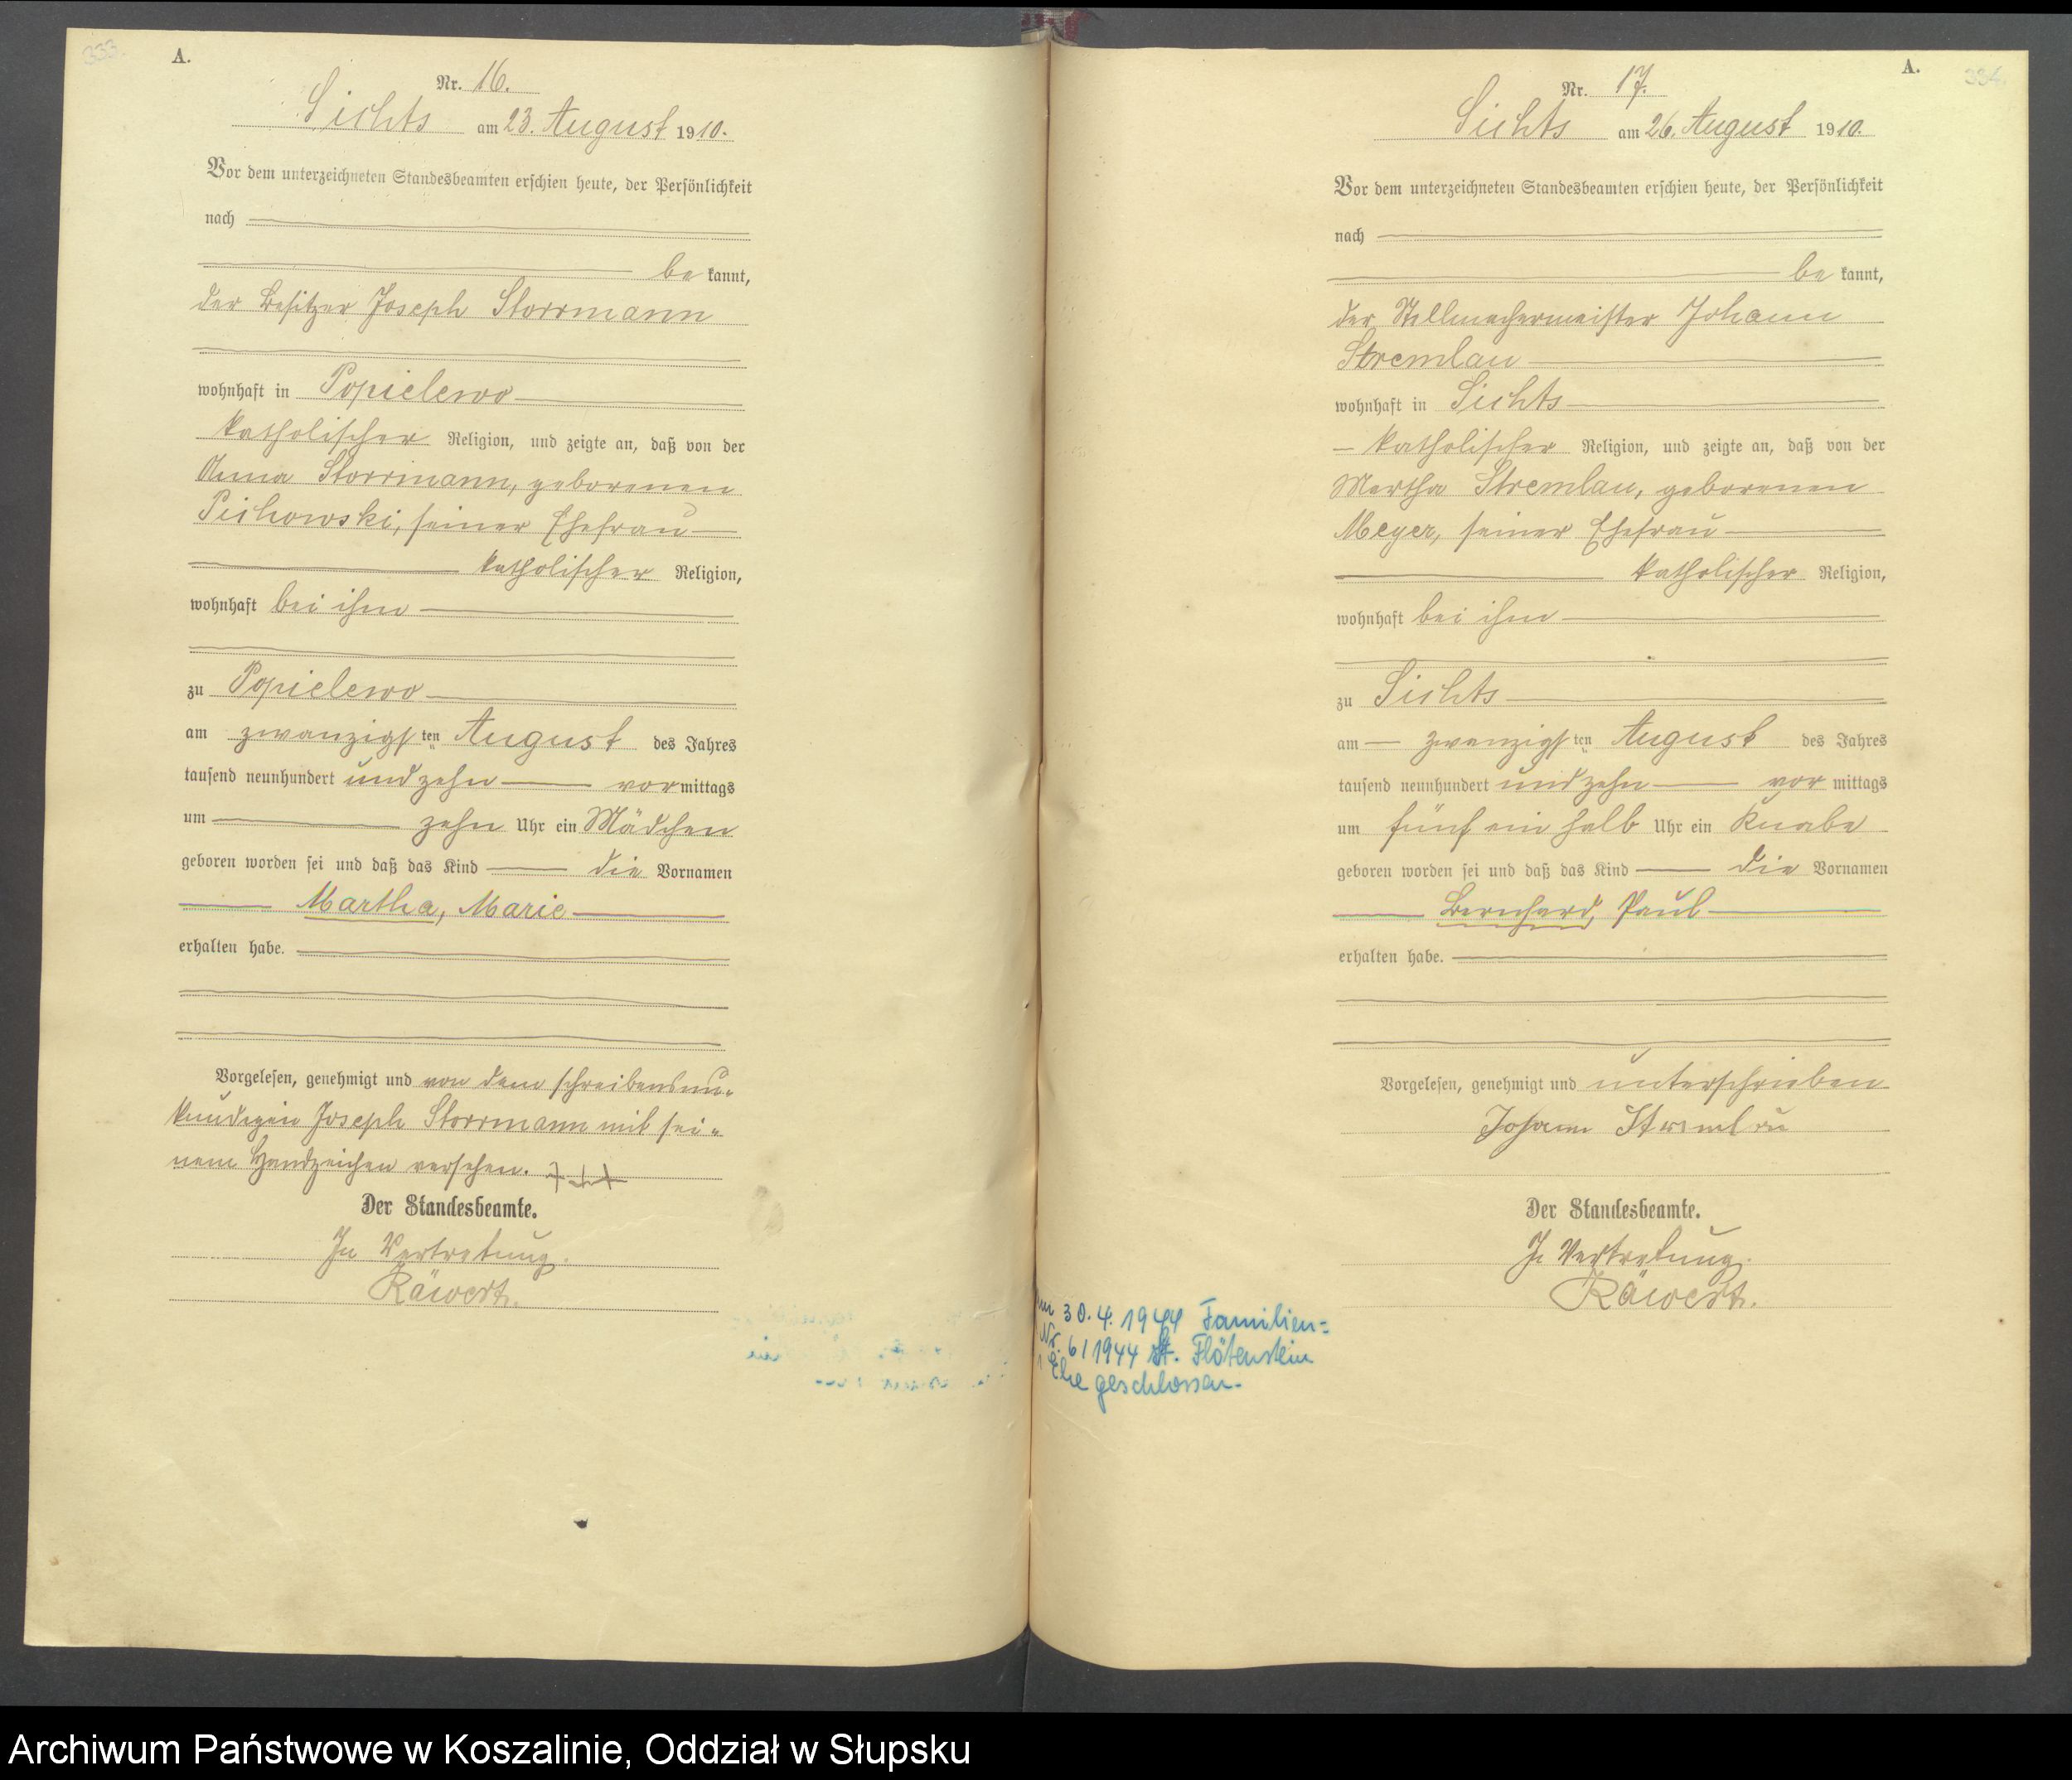 333.
A.
Nr. 16.
Sichts am 23. August 1910.
Vor dem unterzeichneten Standesbeamten erschien heute, der Persönlichkeit
nach
be kannt,
der Besitzer Joseph Storrmann
wohnhaft in Popielewo
katholischer Religion, und zeigte an, daß von der
Anna Storrmann, geborenen
Pichowski, seiner Ehefrau
katholischer Religion,
wohnhaft bei ihm
zu Popielewo
am zwanzigsten August des Jahres
tausend neunhundert und zehn vormittags
um zehn Uhr ein Mädchen
geboren worden sei und daß das Kind die Vornamen
Martha, Marie
erhalten habe.
Vorgelesen, genehmigt und von dem schreibensun-
kundigen Joseph Storrmann mit sei-
nem Handzeichen versehen. +++
Der Standesbeamte.
In Vertretung.
Räwert.
A.
334.
Nr. 17.
Sichts am 26. August 1910.
Vor dem unterzeichneten Standesbeamten erschien heute, der Persönlichkeit
nach
be kannt,
der Stellmachermeister Johann
Stremlau
wohnhaft in Sichts
katholischer Religion, und zeigte an, daß von der
Martha Stremlau, geborenen
Meyer, seiner Ehefrau
katholischer Religion,
wohnhaft bei ihm
zu Sichts
am zwanzigsten August des Jahres
tausend neunhundert und zehn vor mittags
um fünf ein halb Uhr ein Knabe
geboren worden sei und daß das Kind die Vornamen
Bernhard, Paul
erhalten habe.
Vorgelesen, genehmigt und unterschrieben
Johann Stremlau
Der Standesbeamte.
In Vertretung.
Räwert.
am 30.4.1944 Familien=
Nr. 6/1944 St. Flötenstein
Ehe geschlossen.
Archiwum Państwowe w Koszalinie, Oddział w Słupsku